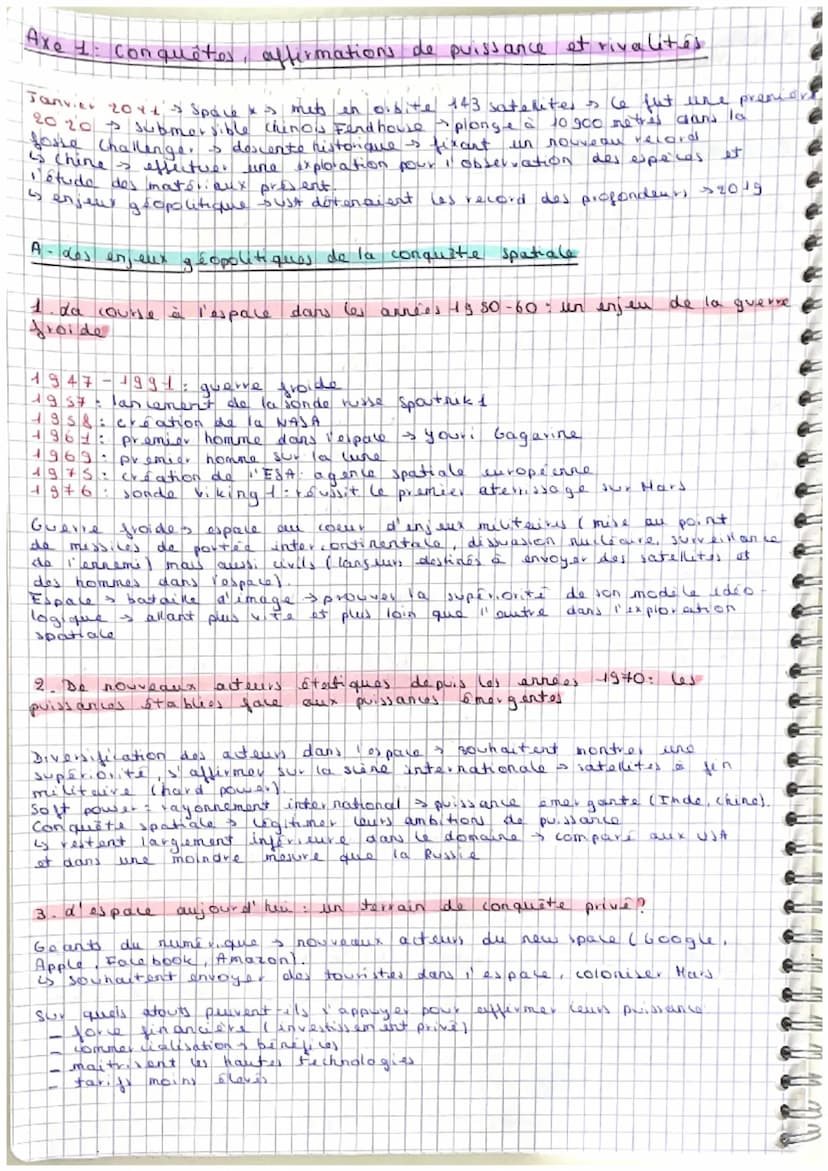 Axe 1: Conquêtes, affirmations de puissance et rivalités
Janvier 2021 → Space x → mets en oibite 143 satelutes → Ce fut une première
2020 → submersible chinois Fendhouse → plonge à 10 900 mètres dans la
fosse challenger → descente historique → fixant un nouveau record
↳ Chine → effectuer une exploration pour l'observation des espèces et
l'étude des matériaux présent.
↳ enjeux géopolitique → USA détenaient les record des profondeurs → 2019
A - des enjeux géopolitiques de la conquête spatiale
1. La course à l'espace dans les années 1950-60 : un enjeu de la guerre
froide
1947 - 1991 : guerre froide
1957 : lancement de la sonde russe Spoutnik 1
1958 : création de la NASA
1961 : premier homme dans l'espace → youri Gagarine
1969 : premier homme sur la lune
1975 : création de l'ESA : agence spatiale européenne
1976 : sonde viking 1 : réussit le premier aterrissage sur Mars
Guerre froide → espace au coeur d'enjeux militaires (mise au point
de missiles de portée intercontinentale, dissuasion nucléaire, surveillance
de l'ennemi) mais aussi civils (lanceurs destinés à envoyer des satellites et
des hommes dans l'espace).
Espace → bataille d'image → prouver la supériorité de son modèle idéo-
logique → allant plus vite et plus loin que l'autre dans l'exploration
spatiale
2. De nouveaux acteurs étatiques depuis les années 1970 : les
puissances établies face aux puissances émergentes
Diversification des acteurs dans l'espace → souhaitent montrer une
supériorité, s'affirmer sur la scène internationale → satellites à fin
militaire (hard power).
Soft power : rayonnement international → puissance emergante (Inde, chine).
Conquête spatiale → légitimer leurs ambitions de puissance
↳ restent largement inférieure dans le domaine → comparé aux USA
et dans une moindre mesure que la Russie
3. d'espace aujourd'hui : un terrain de conquête privé?
Geants du numérique → nouveaux acteurs du new space (Google,
Apple, Facebook, Amazon).
↳ souhaitent envoyer des touristes dans l'espace, coloniser Mars
Sur quels atouts peuvent-ils s'appuyer pour affirmer leurs puissance
- force financière (investissement privé)
- commercialisation → bénéfices
- maitrisent les hautes technologies
- tarifs moins élevés